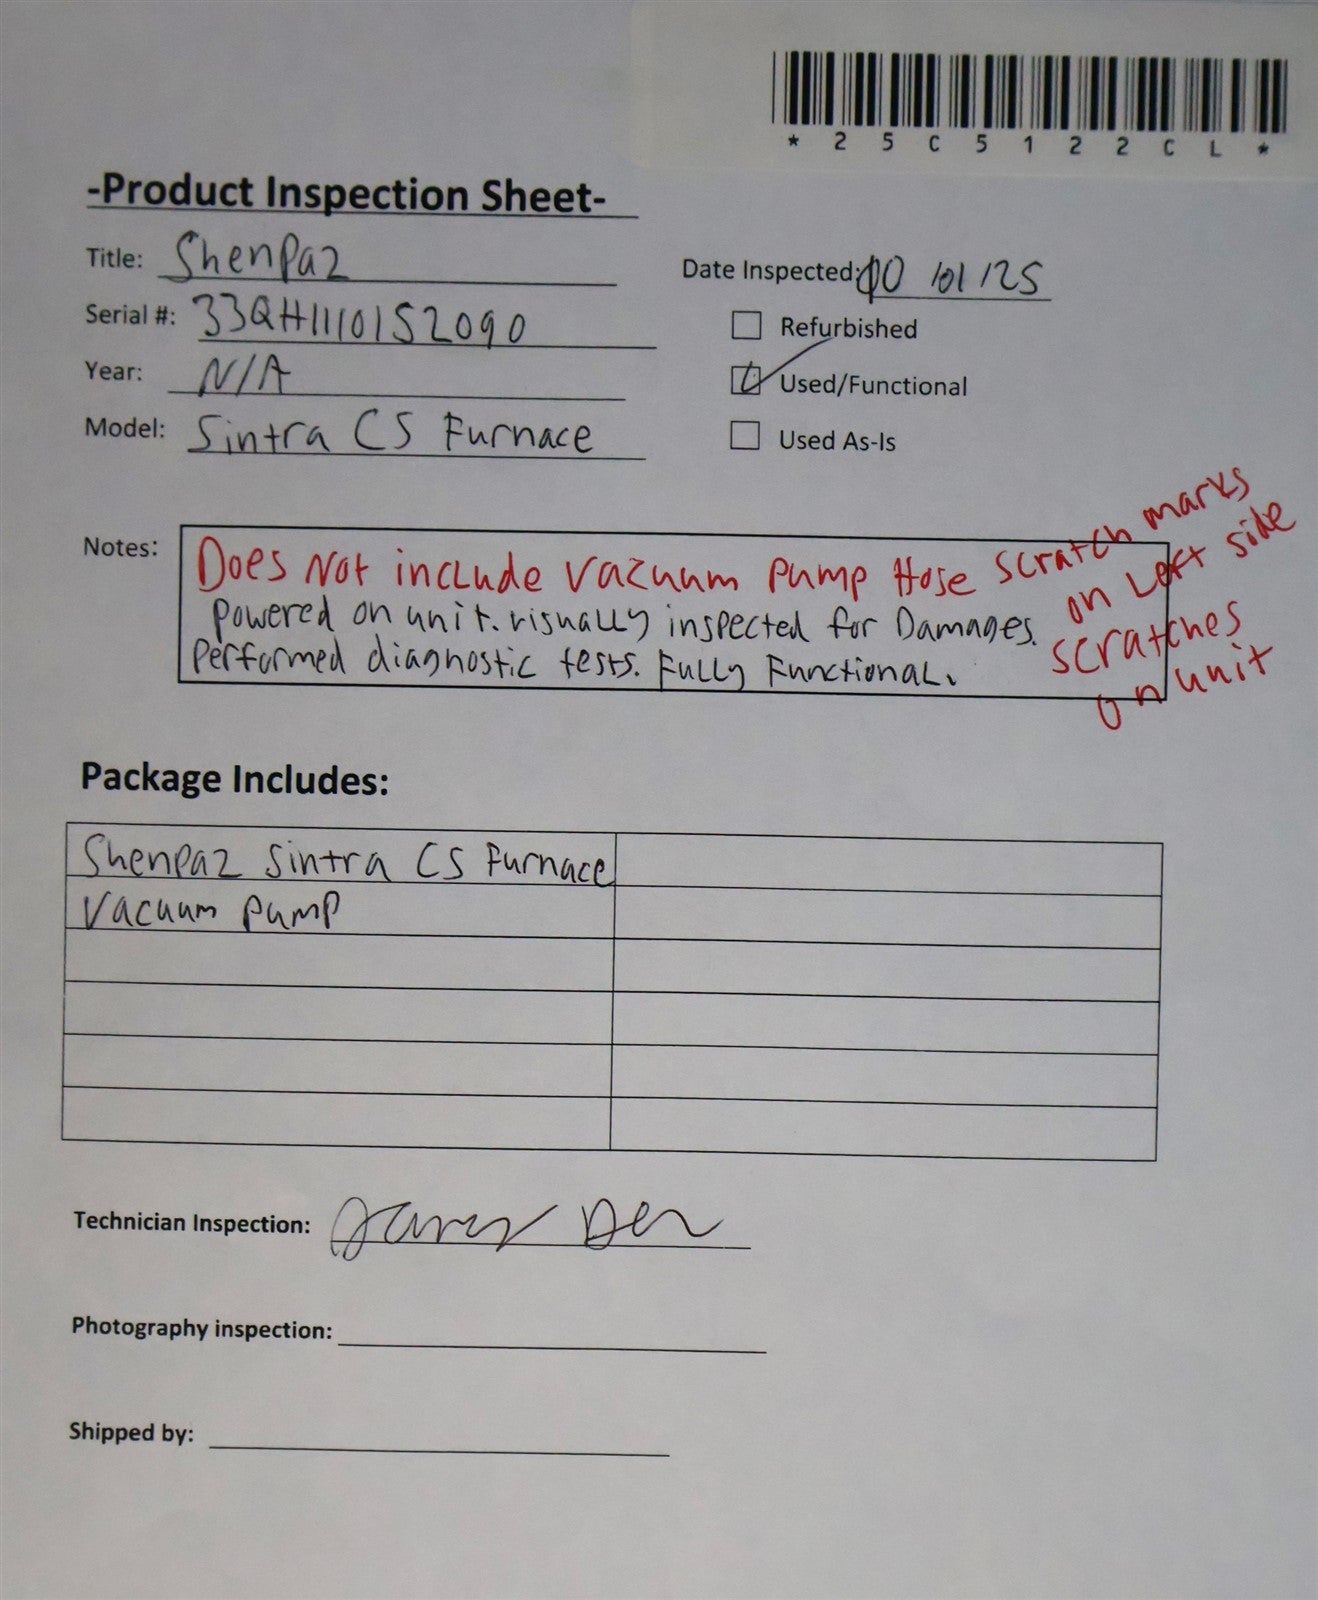 *25C5122CL*
-Product Inspection Sheet-
Title: Shenpaz
Date Inspected: 10/01/25
Serial #: 33QH1110152090
Refurbished
Year: N/A
Used/Functional
Model: Sintra CS Furnace
Used As-Is
Notes:
Does Not include Vazuum Pump Hose
Powered on unit. visually inspected for Damages.
Performed diagnostic tests. Fully Functional.
scratch marks
on Left side
scratches
on unit
Package Includes:
Shenpaz Sintra CS Furnace
Vacuum Pump
Technician Inspection:
Photography inspection:
Shipped by: